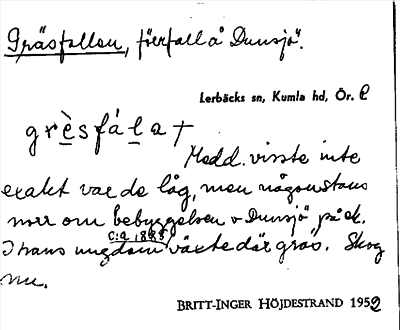 Gräsfallen, förfall å Dunsjö.
Lerbäcks sn, Kumla hd, Ör. l
grèsfála+
Medd. visste inte
exakt var de låg, men någonstans
norr om bebyggelsen v Dunsjö på ek.
C:a 1885
I hans ungdom växte där gräs. Skog
nu.
BRITT-INGER HÖJDESTRAND 1952